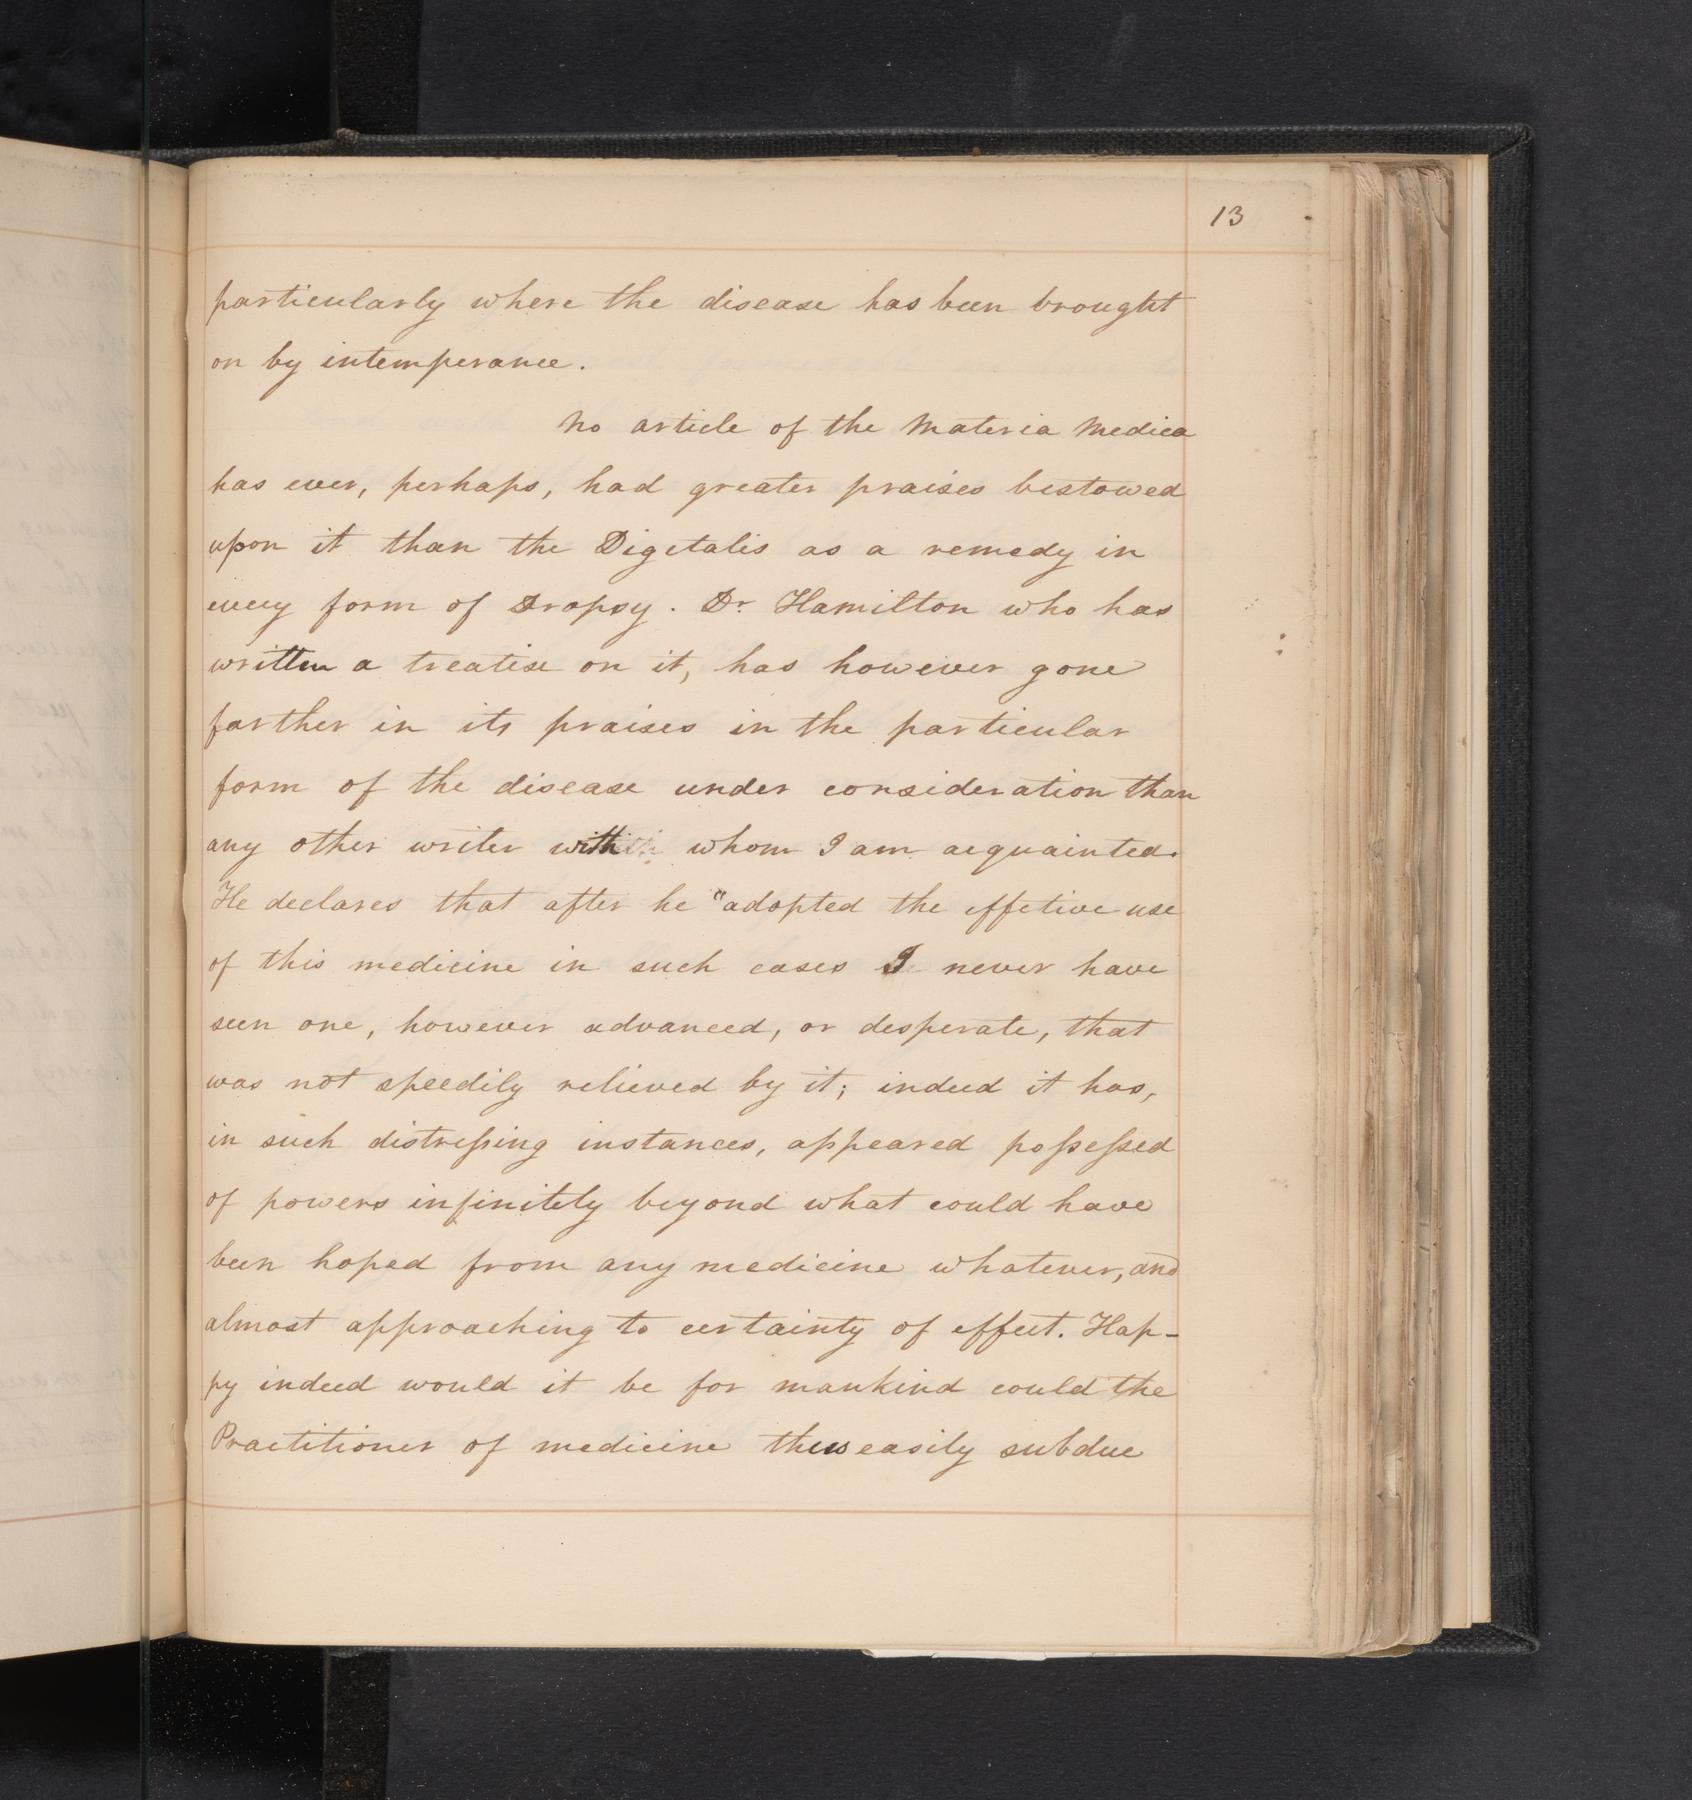 13
particularly where the disease has been brought
on by intemperance.
No article of the Materia Medica
has ever, perhaps, had greater praises bestowed
upon it than the Digitalis as a remedy in
every form of Dropsy. Dr. Hamilton who has
written a treatise on it, has however gone
farther in its praises in the particular
form of the disease under consideration than
any other writer with whom I am acquainted.
He declares that after he "adopted the effetive use
of this medicine in such cases I never have
seen one, however advanced, or desperate, that
was not speedily relieved by it; indeed it has,
in such distreſsing instances, appeared poſseſsed
of powers infinitely beyond what could have
been hoped from any medicine whatever, and
almost approaching to certainty of effect. Hap-
py indeed would it be for mankind could the
Practitioner of medicine thus easily subdue